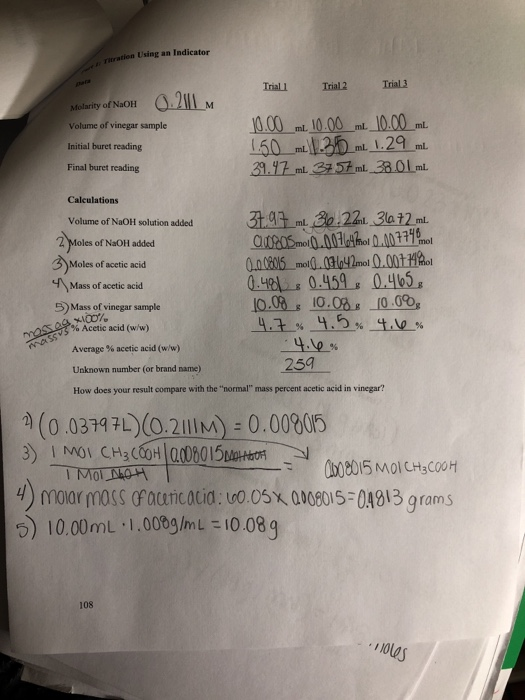 Titration Using an Indicator
Data
Trial 1 Trial 2 Trial 3
Molarity of NaOH 0.2111 M
Volume of vinegar sample 10.00 mL 10.00 mL 10.00 mL
Initial buret reading 1.50 mL 1.35 mL 1.29 mL
Final buret reading 39.47 mL 37.57 mL 38.01 mL
Calculations
Volume of NaOH solution added 37.97 mL 36.22 mL 36.72 mL
2) Moles of NaOH added mol 0.007642 mol 0.007748 mol
3) Moles of acetic acid 0.008015 mol 0.007642 mol 0.007748 mol
4) Mass of acetic acid 0.481 g 0.459 g 0.465 g
5) Mass of vinegar sample 10.08 g 10.08 g 10.08 g
mass aa x100%
mass vs % Acetic acid (w/w) 4.7 % 4.5 % 4.6 %
Average % acetic acid (w/w) 4.6 %
Unknown number (or brand name) 259
How does your result compare with the "normal" mass percent acetic acid in vinegar?
2) (0.03797L)(0.2111M) = 0.008015
3) 1 mol CH3COOH | 0.008015 mol NaOH
1 Mol NaOH = 0.008015 mol CH3COOH
4) molar mass of acetic acid: 60.05 x 0.008015 = 0.4813 grams
5) 10.00mL · 1.008g/mL = 10.08g
108